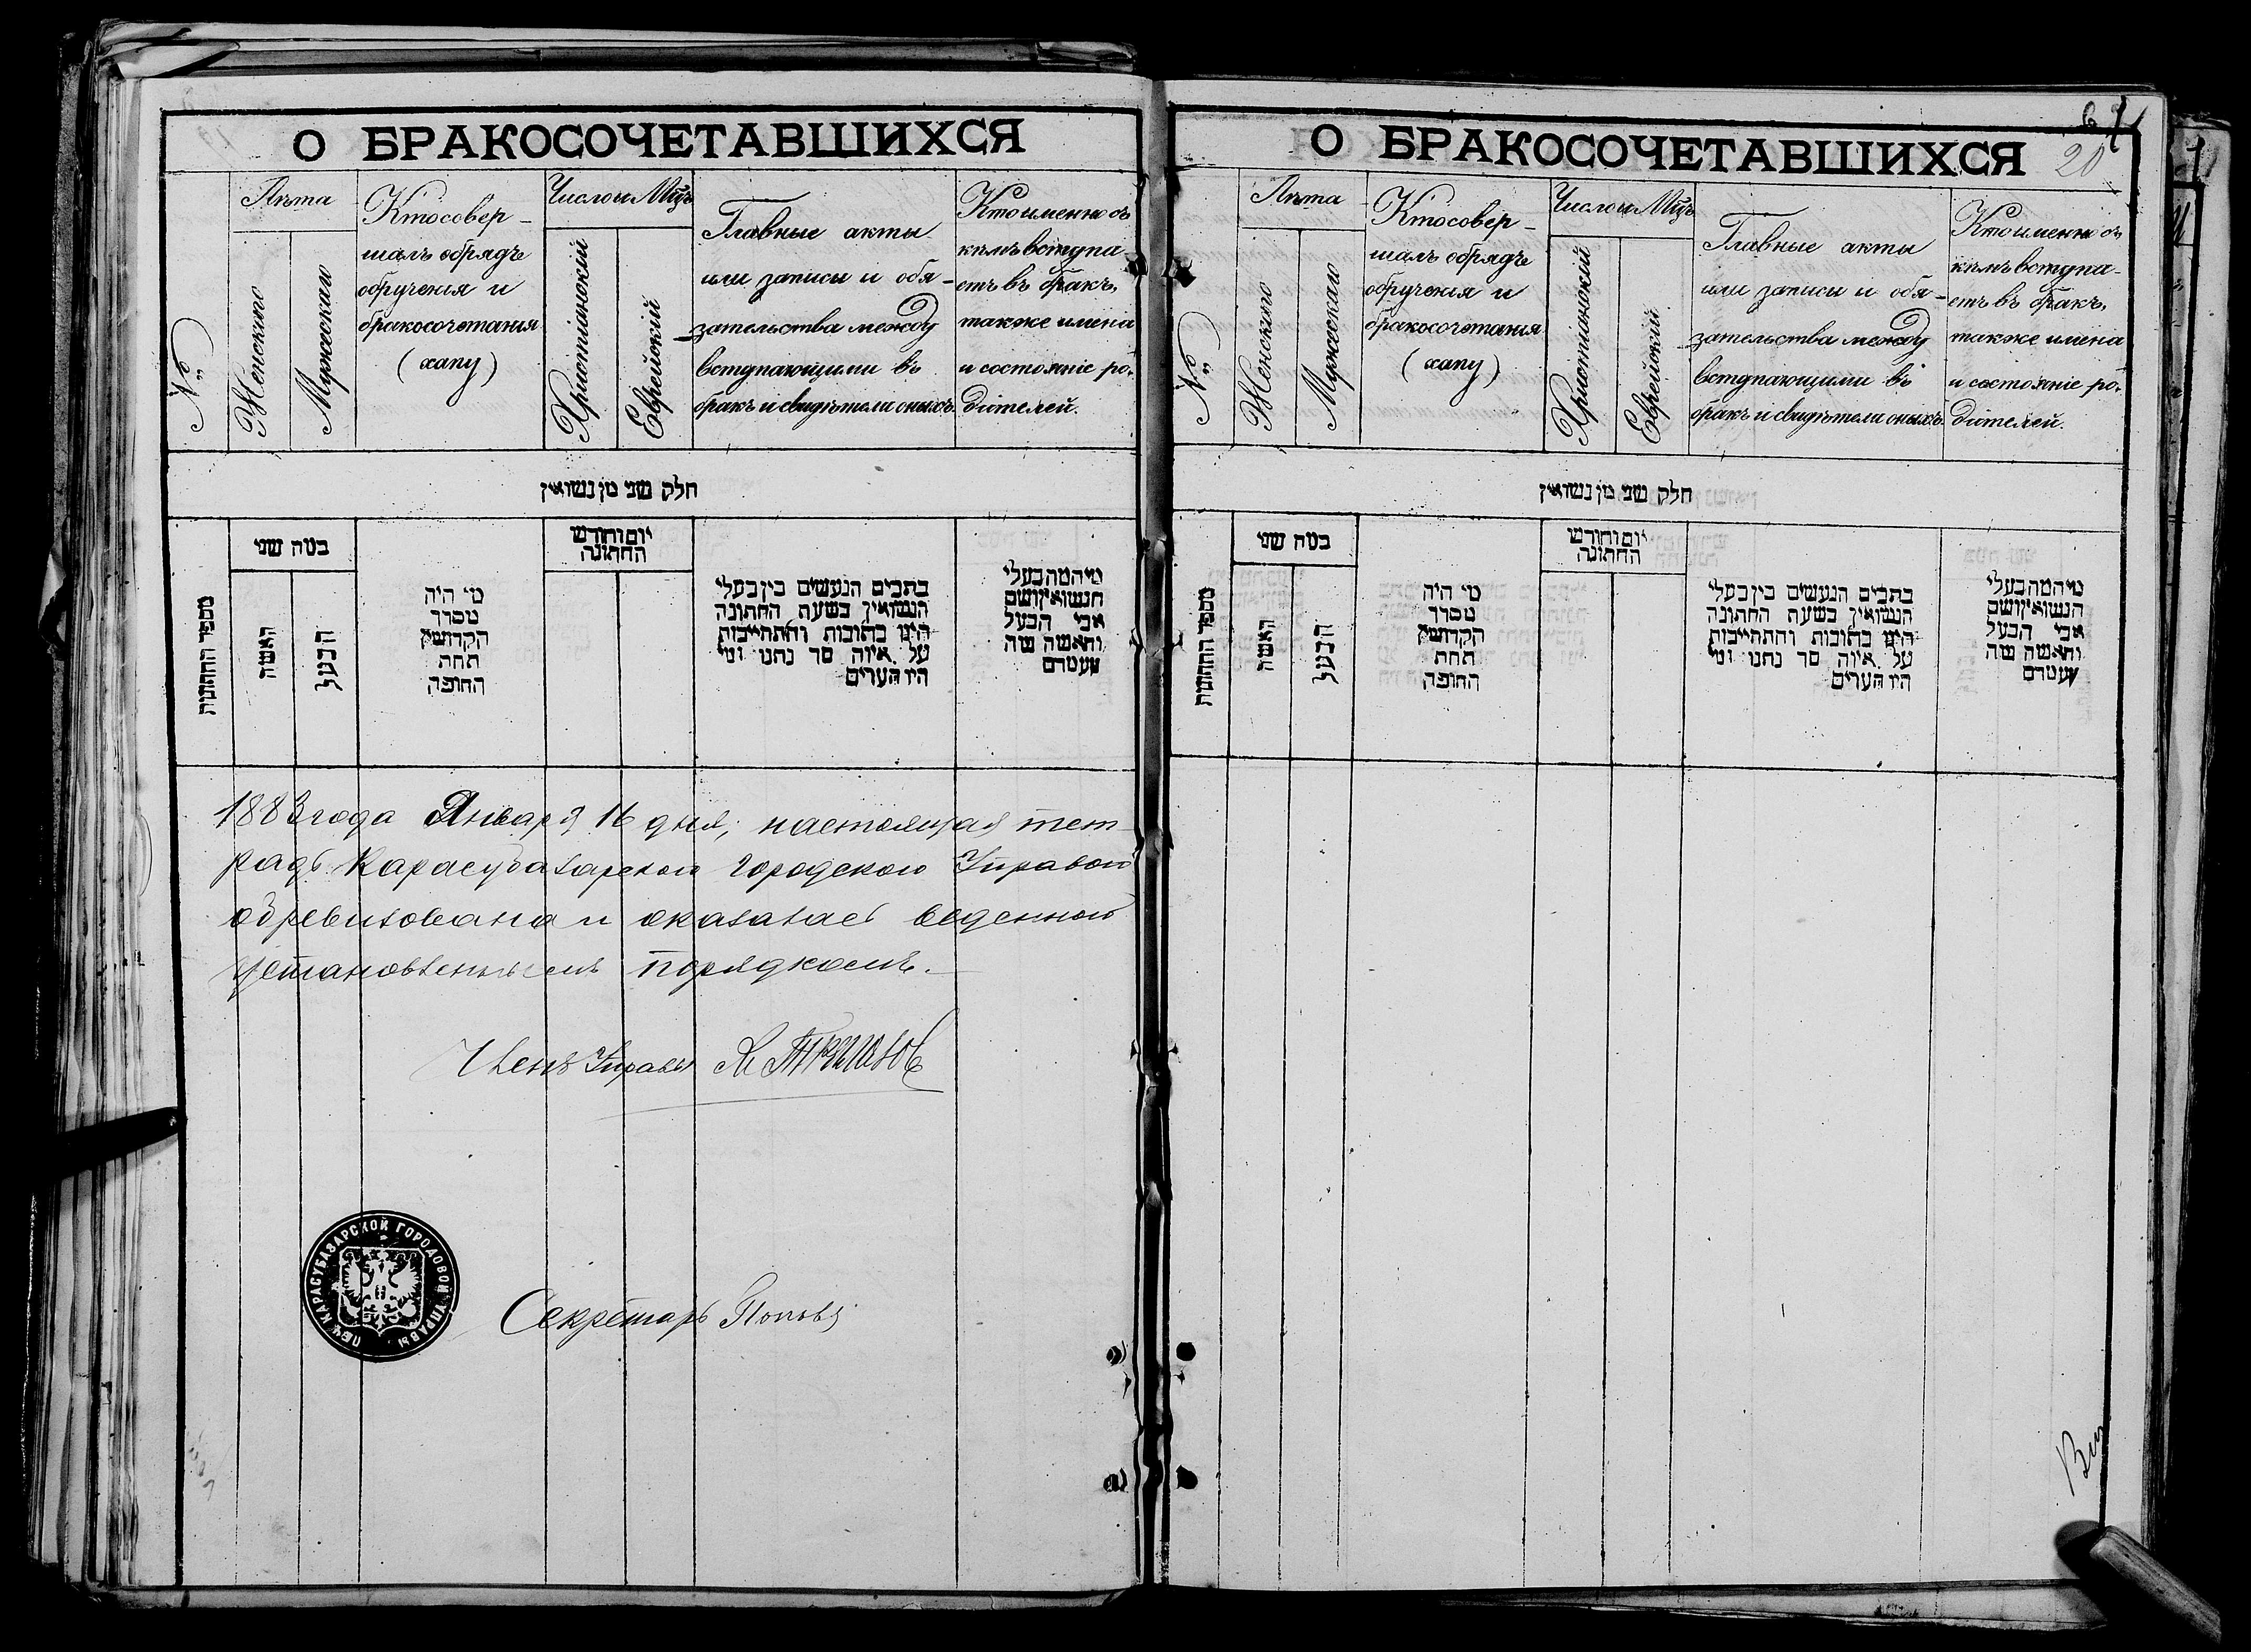 О БРАКОСОЧЕТАВШИХСЯ
№
Лѣта
Женскаго
Мужескаго
Кто совер-
шалъ обрядъ
обрученія и
бракосочетанія
(хапу)
Число и Мѣц.
Христіанскій
Еврейскій
Главные акты
или записи и обя-
зательства между
вступающими въ
бракъ и свидѣтели оныхъ.
Кто именно съ
кѣмъ вступа-
етъ въ бракъ,
также имена
и состояніе ро-
дителей.
חלק שני מן נשואין
מספר החתונות
כמה שני
האשה
הבעל
מי היה
מסדר
הקדושין
תחת
החופה
יום וחודש
החתונה
כתבים הנעשים בין בעלי
הנשואין בשעת החתונה
היינו כתובות והתחייבות
על איזה סך נתנו ומי
היו הערים
מי המה בעלי
הנשואין ושם
אבי הבעל
והאשה ומה
מעמדם
1883 года Января 16 дня, настоящая тет-
радь Карасубазарской городскою Управой
обревизована и оказалась веденной
установленнымъ порядкомъ.
Членъ Управы
ПЕЧ. КАРАСУБАЗАРСКОЙ ГОРОДОВОЙ УПРАВЫ
Секретарь Поповъ
О БРАКОСОЧЕТАВШИХСЯ
20
№
Лѣта
Женскаго
Мужескаго
Кто совер-
шалъ обрядъ
обрученія и
бракосочетанія
(хапу)
Число и Мѣц.
Христіанскій
Еврейскій
Главные акты
или записи и обя-
зательства между
вступающими въ
бракъ и свидѣтели оныхъ.
Кто именно съ
кѣмъ вступа-
етъ въ бракъ,
также имена
и состояніе ро-
дителей.
חלק שני מן נשואין
מספר החתונות
כמה שני
האשה
הבעל
מי היה
מסדר
הקדושין
תחת
החופה
יום וחודש
החתונה
כתבים הנעשים בין בעלי
הנשואין בשעת החתונה
היינו כתובות והתחייבות
על איזה סך נתנו ומי
היו הערים
מי המה בעלי
הנשואין ושם
אבי הבעל
והאשה ומה
מעמדם